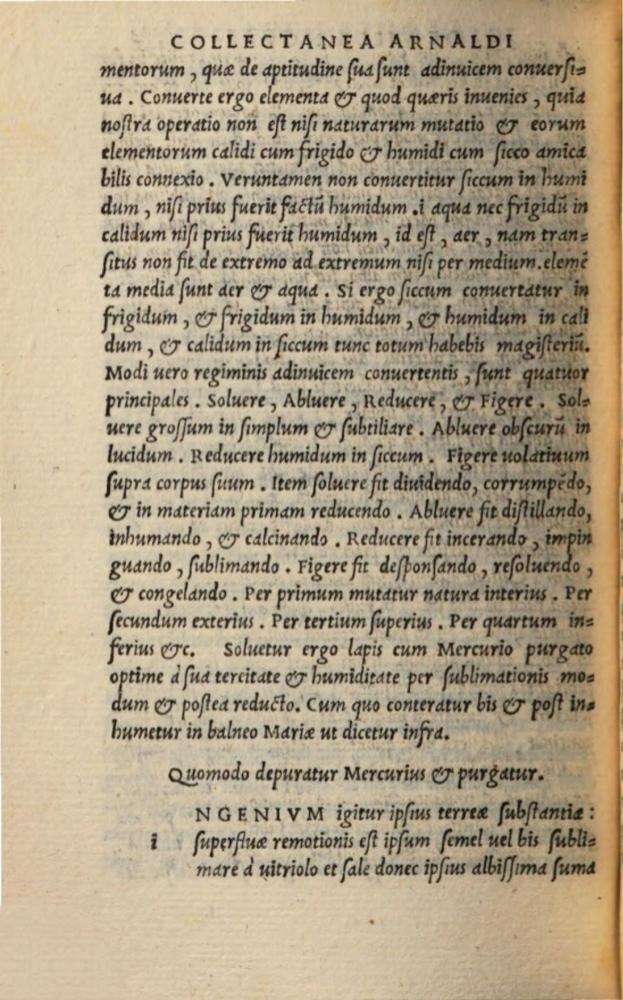 COLLECTANEA ARNALDI
mentorum, quæ de aptitudine ſua ſunt adinuicem conuerſi⸗
ua. Conuerte ergo elementa & quod quæris inuenies, quia
noſtra operatio non eſt niſi naturarum mutatio & eorum
elementorum calidi cum frigido & humidi cum ſicco amica
bilis connexio. Veruntamen non conuertitur ſiccum in humi
dum, niſi prius fuerit factū humidum.i aqua nec frigidū in
calidum niſi prius fuerit humidum, id eſt, aer, nam tran⸗
ſitus non fit de extremo ad extremum niſi per medium.elemē
ta media ſunt aer & aqua. Si ergo ſiccum conuertatur in
frigidum, & frigidum in humidum, & humidum in cali
dum, & calidum in ſiccum tunc totum habebis magiſteriū.
Modi uero regiminis adinuicem conuertentis, ſunt quatuor
principales. Soluere, Abluere, Reducere, & Figere. Sol⸗
uere groſſum in ſimplum & ſubtiliare. Abluere obſcurū in
lucidum. Reducere humidum in ſiccum. Figere uolatiuum
ſupra corpus ſuum. Item ſoluere fit diuidendo, corrumpēdo,
& in materiam primam reducendo. Abluere fit diſtillando,
inhumando, & calcinando. Reducere fit incerando, impin
guando, ſublimando. Figere fit deſponſando, reſoluendo,
& congelando. Per primum mutatur natura interius. Per
ſecundum exterius. Per tertium ſuperius. Per quartum in⸗
ferius &c. Soluetur ergo lapis cum Mercurio purgato
optime à ſua terreitate & humiditate per ſublimationis mo⸗
dum & poſtea reducto. Cum quo conteratur bis & poſt in⸗
humetur in balneo Mariæ ut dicetur infra.
Quomodo depuratur Mercurius & purgatur.
NGENIVM igitur ipſius terreæ ſubſtantiæ:
i ſuperfluæ remotionis eſt ipſum ſemel uel bis ſubli⸗
mare à uitriolo et ſale donec ipſius albiſſima ſuma